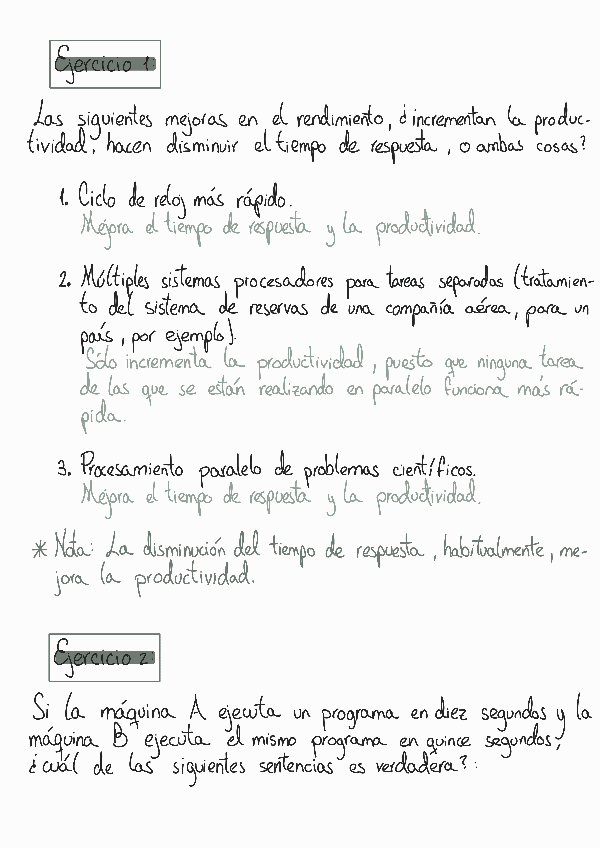 Ejercicio 1
Las siguientes mejoras en el rendimiento, ¿incrementan la produc-
tividad, hacen disminuir el tiempo de respuesta, o ambas cosas?
1. Ciclo de reloj más rápido.
Mejora el tiempo de respuesta y la productividad.
2. Múltiples sistemas procesadores para tareas separadas (tratamien-
to del sistema de reservas de una compañía aérea, para un
país, por ejemplo).
Sólo incrementa la productividad, puesto que ninguna tarea
de las que se están realizando en paralelo funciona más rá-
pida.
3. Procesamiento paralelo de problemas científicos.
Mejora el tiempo de respuesta y la productividad.
* Nota: La disminución del tiempo de respuesta, habitualmente, me-
jora la productividad.
Ejercicio 2
Si la máquina A ejecuta un programa en diez segundos y la
máquina B ejecuta el mismo programa en quince segundos,
¿cuál de las siguientes sentencias es verdadera?: